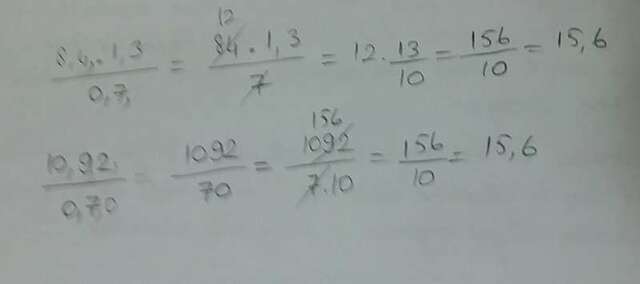 8,4 . 1,3 / 0,7 = 12 84 . 1,3 / 7 = 12 . 13 / 10 = 156 / 10 = 15,6
10,92 / 0,70 = 1092 / 70 = 156 1092 / 7.10 = 156 / 10 = 15,6